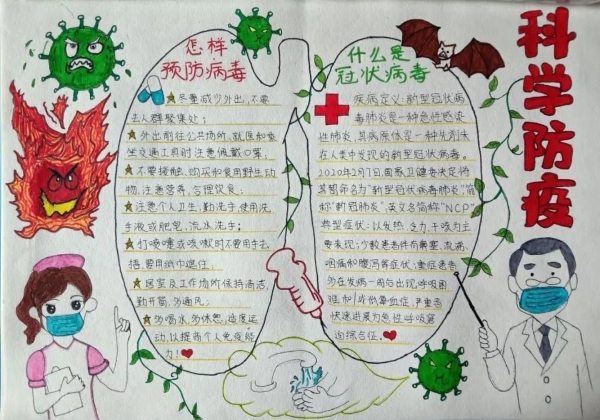 科学防疫
怎样
预防病毒
★尽量减少外出,不要
去人群聚集处;
★外出前往公共场所、就医和乘
坐交通工具时注意佩戴口罩;
★不要接触、购买和食用野生动
物,注意营养、合理饮食;
★注意个人卫生:勤洗手,使用洗
手液或肥皂,流水洗手;
★打喷嚏或咳嗽时不要用手去
捂,要用纸巾遮住;
★居室及工作场所保持清洁,
勤开窗,多通风;
★多喝水,多休息,适度运
动,以提高个人免疫能
力!
什么是
冠状病毒
疾病定义:新型冠状病
毒肺炎是一种急性感染
性肺炎,其病原体是一种先前未
在人类中发现的新型冠状病毒。
2020年2月7日,国家卫健委决定将
其暂命名为"新型冠状病毒肺炎"简
称"新冠肺炎",英文名简称"NCP"
典型症状:以发热、乏力、干咳为主
要表现;少数患者伴有鼻塞、流涕、
咽痛和腹泻等症状;重症患者
多在发病一周后出现呼吸困
难和/或低氧血症,严重者
快速进展为急性呼吸窘
迫综合征。